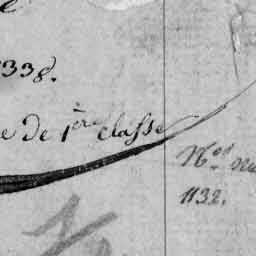 e
1338.
e de 1ère classe
Nos
1132.